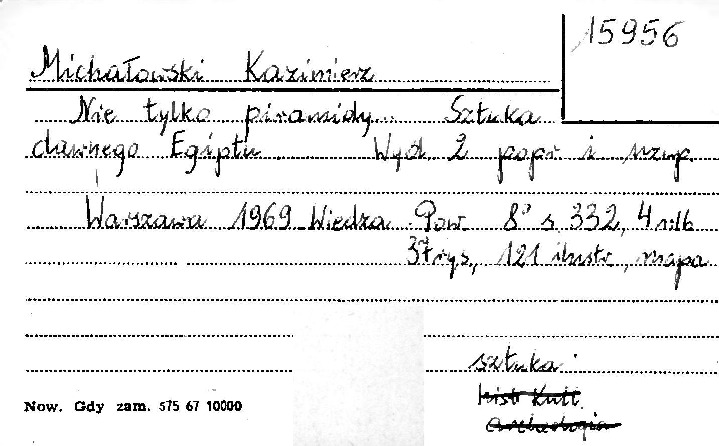 15956
Michałowski Kazimierz
Nie tylko piramidy... Sztuka
dawnego Egiptu. Wyd 2 popr i uzup.
Warszawa 1969 Wiedza Pow. 8° s 332, 4 nlb
37 rys, 121 ilustr, mapa
sztuka
histr Kult.
archeologia
Now. Gdy zam. 575 67 10000